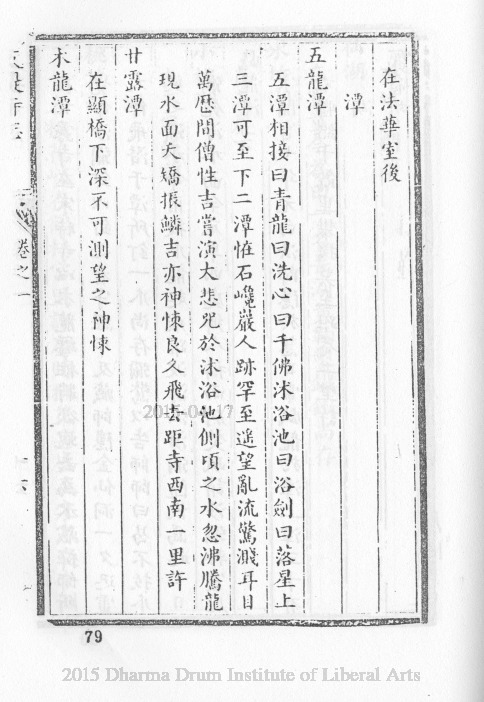 在法華室後
潭
五龍潭
五潭相接曰青龍曰洗心曰千佛沐浴池曰浴劍曰落星上
三潭可至下二潭恠石巉巖人跡罕至遙望亂流驚濺耳目
萬曆間僧性吉嘗演大悲咒於沐浴池側頃之水忽沸騰龍
現水面夭矯振鱗吉亦神悚良久飛去距寺西南一里許
甘露潭
在顯橋下深不可測望之神悚
木龍潭
卷之一
79
2015 Dharma Drum Institute of Liberal Arts